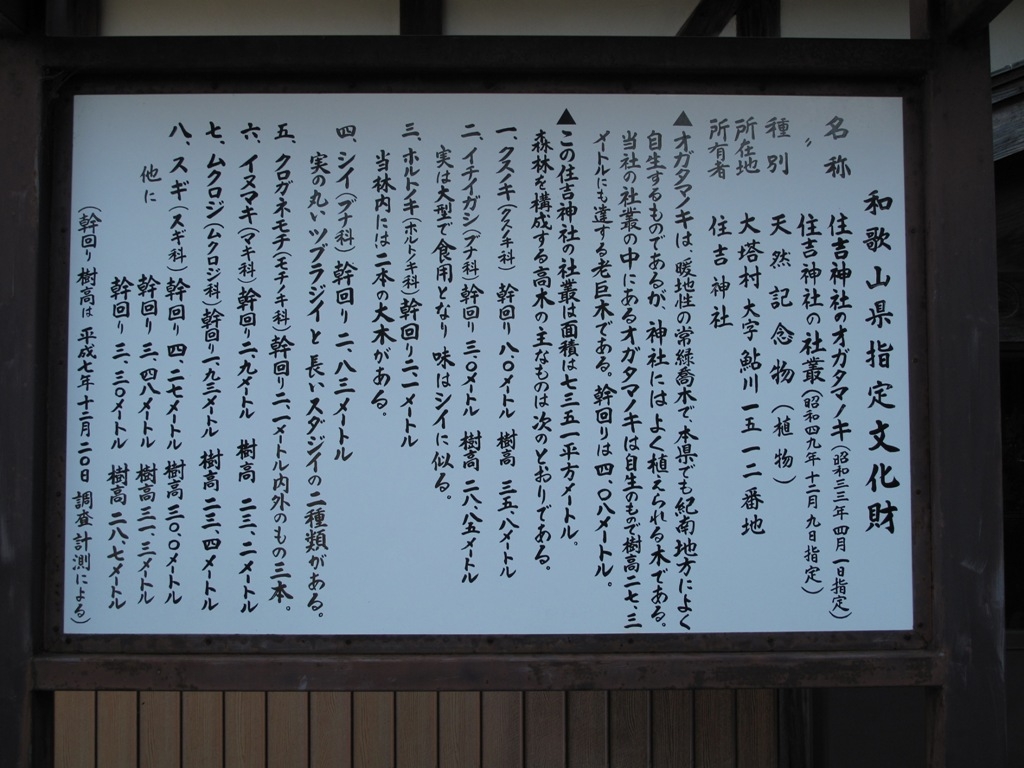 和歌山県指定文化財
名称 住吉神社のオガタマノキ(昭和三三年四月一日指定)
〃 住吉神社の社叢(昭和四九年十二月九日指定)
種別 天然記念物(植物)
所在地 大塔村大字鮎川一五一二番地
所有者 住吉神社
▲オガタマノキは、暖地性の常緑喬木で、本県でも紀南地方によく
自生するものであるが、神社にはよく植えられる木である。
当社の社叢の中にあるオガタマノキは自生のもので樹高二七、三
メートルにも達する老巨木である。幹回りは四、〇八メートル。
▲この住吉神社の社叢は面積は七三五一平方メートル。
森林を構成する高木の主なものは次のとおりである。
一、クスノキ(クスノキ科) 幹回り 八、〇メートル 樹高 三五、八メートル
二、イチイガシ(ブナ科) 幹回り 三、〇メートル 樹高 二八、八五メートル
実は大型で食用となり 味はシイに似る。
三、ホルトノキ(ホルトノキ科) 幹回り 二、一メートル
当林内には二本の大木がある。
四、シイ(ブナ科) 幹回り 二、八三メートル
実の丸いツブラジイと長いスダジイの二種類がある。
五、クロガネモチ(モチノキ科) 幹回り 二、一メートル内外のもの三本。
六、イヌマキ(マキ科) 幹回り 二、九メートル 樹高 二三、二メートル
七、ムクロジ(ムクロジ科) 幹回り 一、九三メートル 樹高 二三、四メートル
八、スギ(スギ科) 幹回り 四、二七メートル 樹高 三〇、〇メートル
他に 幹回り 三、四八メートル 樹高 三一、三メートル
幹回り 三、三〇メートル 樹高 二八、七メートル
(幹回り 樹高は 平成七年十二月二〇日 調査計測による)